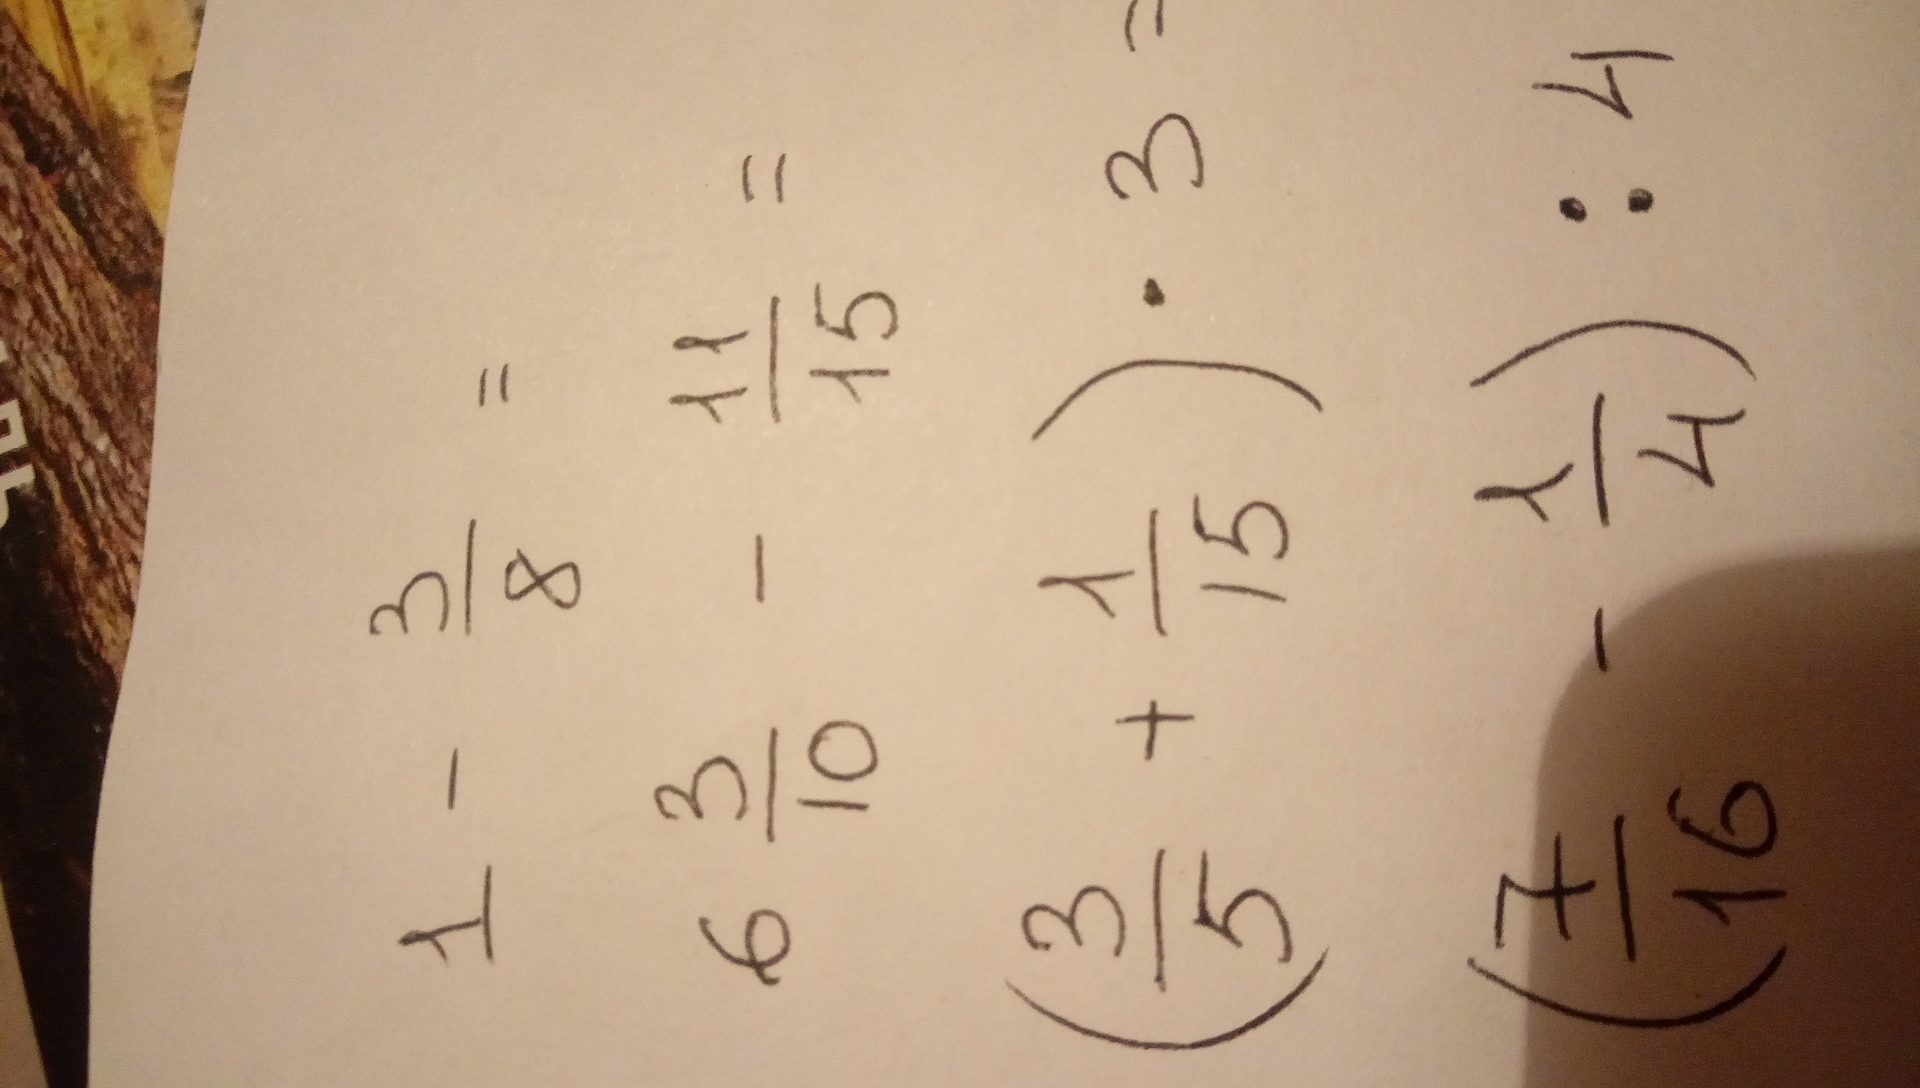 1 - 3/8 =
6 3/10 - 11/15 =
(3/5 + 1/15) · 3 =
(7/16 - 1/4) : 4